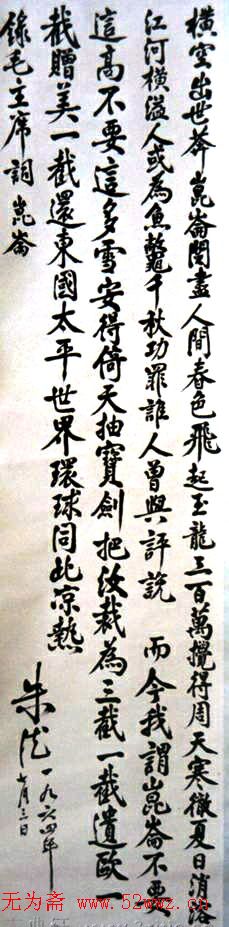 橫空出世莽崑崙閱盡人間春色飛起玉龍三百萬攪得周天寒徹夏日消溶
江河橫溢人或為魚鱉千秋功罪誰人曾與評說 而今我謂崑崙不要
這高不要這多雪安得倚天抽寶劍把汝裁為三截一截遺歐一
截贈美一截還東國太平世界環球同此涼熱
錄毛主席詞崑崙
朱德
一九六四年
七月三日
无为斋 www.52wwz.cn